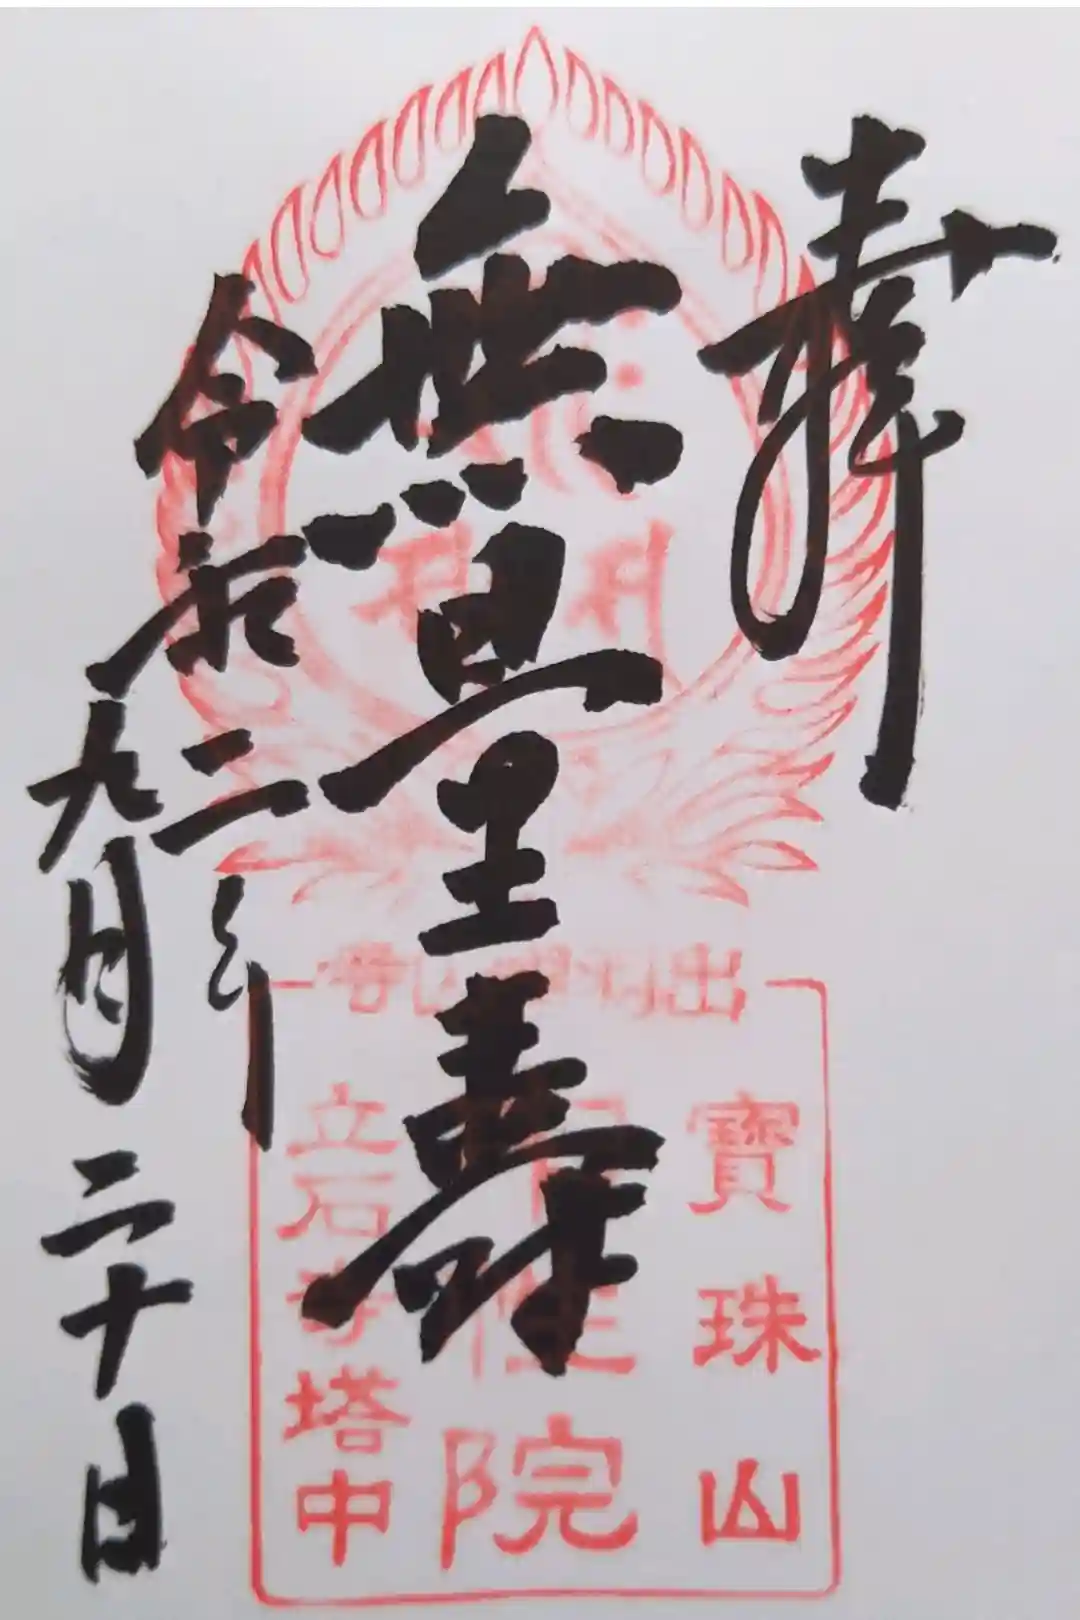 奉拝
無量壽
令和二年
九月二十日
出羽國山寺
寶珠山
中性院
立石寺塔中